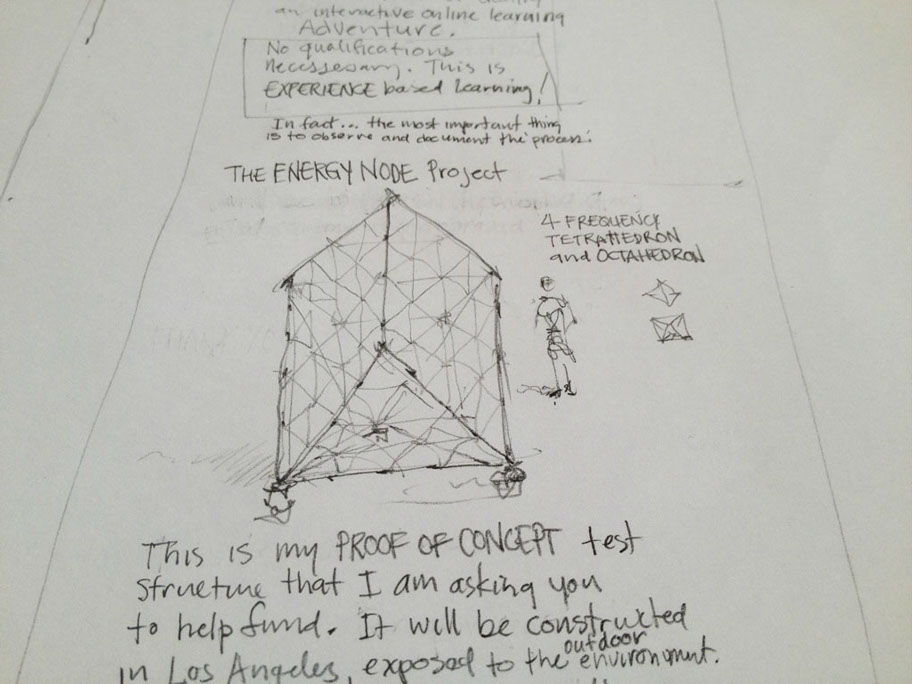 an interactive online learning
Adventure.
No qualifications
necessesary. This is
EXPERIENCE based learning!
In fact... the most important thing
is to observe and document the process.
THE ENERGY NODE Project
4-FREQUENCY
TETRAHEDRON
and OCTAHEDRON
This is my PROOF OF CONCEPT test
structure that I am asking you
to help fund. It will be constructed
outdoor
in Los Angeles, exposed to the environment.